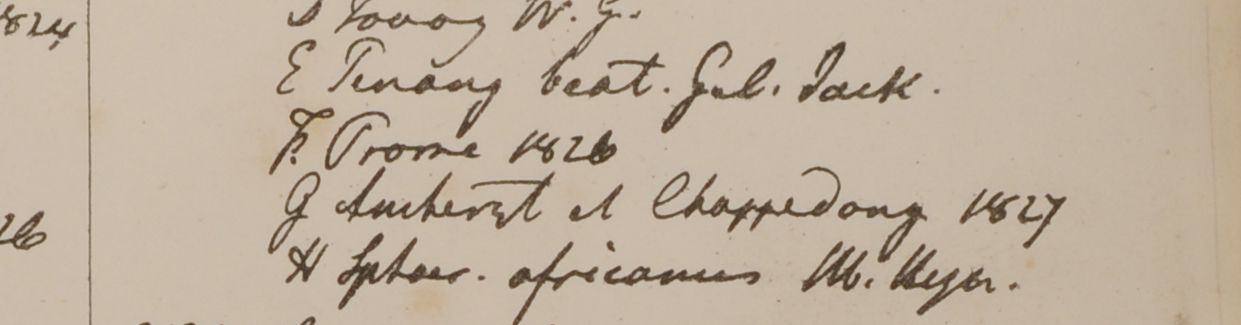 1824
D Tavoy W. G.
E Penang beat. Gul. Jack.
F. Prome 1826
G Amherst et Chappedong 1827
26
H Sphaer. africanus W. Herb.